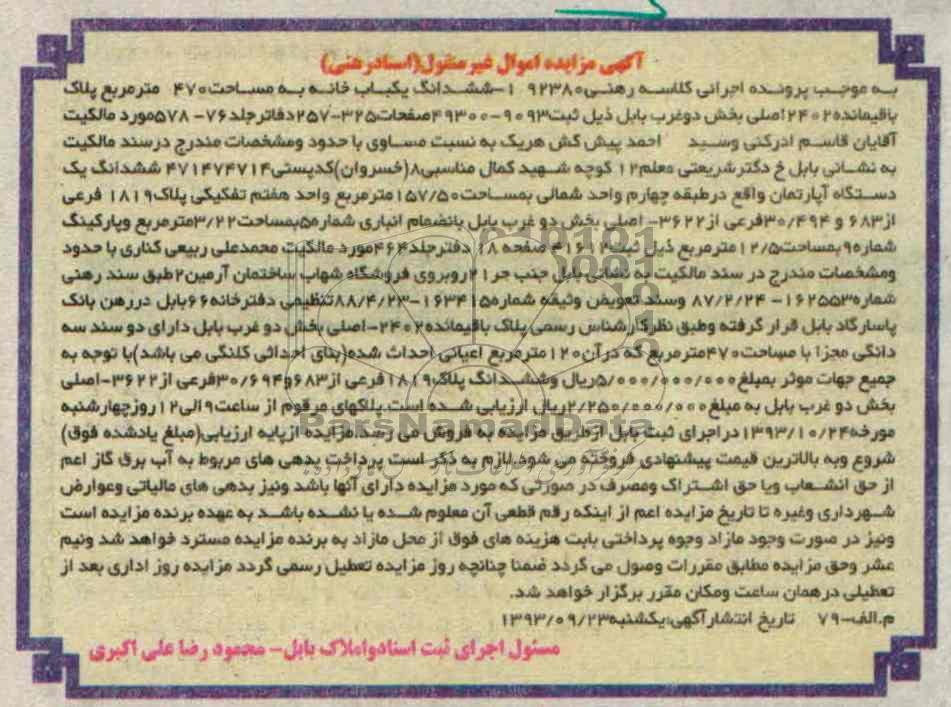 آگهی مزایده اموال غیر منقول(اسنادرهنی)
به موجب پرونده اجرائی کلاسه رهنی۹۲۳۸۰ ۱-ششدانگ یکباب خانه به مساحت۴۷۰ مترمربع پلاک
باقیمانده۲۴۰۲اصلی بخش دوغرب بابل ذیل ثبت۹۰۹۳-۴۹۳۰۰صفحات۳۲۵-۲۵۷دفاترجلد۷۶-۵۷۸مورد مالکیت
آقایان قاسم ادرکنی وسید احمد پیش کش هریک به نسبت مساوی با حدود ومشخصات مندرج درسند مالکیت
به نشانی بابل خ دکترشریعتی معلم۱۲ کوچه شهید کمال مناسبی۸(خسروان)کدپستی۴۷۱۴۷۴۷۱۴ ششدانگ یک
دستگاه آپارتمان واقع درطبقه چهارم واحد شمالی بمساحت۱۵۷/۵۰مترمربع واحد هفتم تفکیکی پلاک۱۸۱۹ فرعی
از۶۸۳ و ۳۰/۴۹۴فرعی از۳۶۲۲- اصلی بخش دو غرب بابل بانضمام انباری شماره۵بمساحت۳/۲۲مترمربع وپارکینگ
شماره۹بمساحت۱۲/۵مترمربع ذیل ثبت۴۱۶۱۲ صفحه ۱۸ دفترجلد۴۶۴مورد مالکیت محمدعلی ربیعی کناری با حدود
ومشخصات مندرج در سند مالکیت به نشانی بابل جنب جر۲۱روبروی فروشگاه شهاب ساختمان آرمین۲طبق سند رهنی
شماره۱۶۲۵۵۳- ۸۷/۲/۲۴ وسند تعویض وثیقه شماره۱۶۳۴۱۵-۸۸/۴/۲۳تنظیمی دفترخانه۶۶بابل دررهن بانک
پاسارگاد بابل قرار گرفته وطبق نظرکارشناس رسمی پلاک باقیمانده۲۴۰۲-اصلی بخش دو غرب بابل دارای دو سند سه
دانگی مجزا با مساحت۴۷۰مترمربع که درآن۱۲۰مترمربع اعیانی احداث شده(بنای احداثی کلنگی می باشد)با توجه به
جمیع جهات موثر بمبلغ۵/۰۰۰/۰۰۰/۰۰۰ریال وششدانگ پلاک۱۸۱۹فرعی از۶۸۳و۳۰/۶۹۴فرعی از۳۶۲۲-اصلی
بخش دو غرب بابل به مبلغ۲/۲۵۰/۰۰۰/۰۰۰ریال ارزیابی شده است.پلاکهای مرقوم از ساعت۹الی۱۲روزچهارشنبه
مورخه۱۳۹۳/۱۰/۲۴دراجرای ثبت بابل ازطریق مزایده به فروش می رسد.مزایده ازپایه ارزیابی(مبلغ یادشده فوق)
شروع وبه بالاترین قیمت پیشنهادی فروخته می شود.لازم به ذکر است پرداخت بدهی های مربوط به آب برق گاز اعم
از حق انشعاب ویا حق اشتراک ومصرف در صورتی که مورد مزایده دارای آنها باشد ونیز بدهی های مالیاتی وعوارض
شهرداری وغیره تا تاریخ مزایده اعم از اینکه رقم قطعی آن معلوم شده یا نشده باشد به عهده برنده مزایده است
ونیز در صورت وجود مازاد وجوه پرداختی بابت هزینه های فوق از محل مازاد به برنده مزایده مسترد خواهد شد ونیم
عشر وحق مزایده مطابق مقررات وصول می گردد ضمنا چنانچه روز مزایده تعطیل رسمی گردد مزایده روز اداری بعد از
تعطیلی درهمان ساعت ومکان مقرر برگزار خواهد شد.
م.الف-۷۹ تاریخ انتشارآگهی:یکشنبه۱۳۹۳/۰۹/۲۳
مسئول اجرای ثبت اسنادواملاک بابل- محمود رضا علی اکبری
ParsNamadData